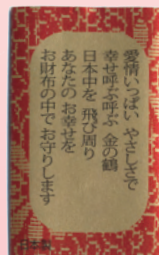 愛情いっぱい やさしさで
幸せ呼ぶ呼ぶ 金の鶴
日本中を 飛び周り
あなたの お幸せを
お財布の中で お守りします